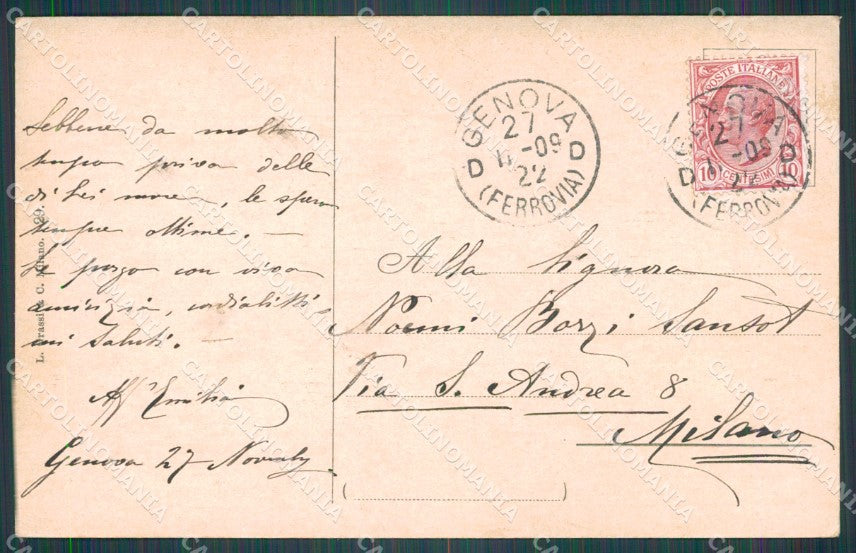 Sebbene da molto
tempo priva delle
di Lei nuove, le spero
sempre ottime. -
Le porgo con viva
amicizia, cordialissi-
mi saluti. -
Aff. Emilia
Genova 27 Novembre
L. C. Milano.
GENOVA
27
11-09
22
D D
(FERROVIA)
POSTE ITALIANE
10 CENTESIMI 10
27
-09
22
D D
(FERROVIA)
Alla Signora
Noemi Borzi Sansot
Via S. Andrea 8
Milano
CARTOLINOMANIA